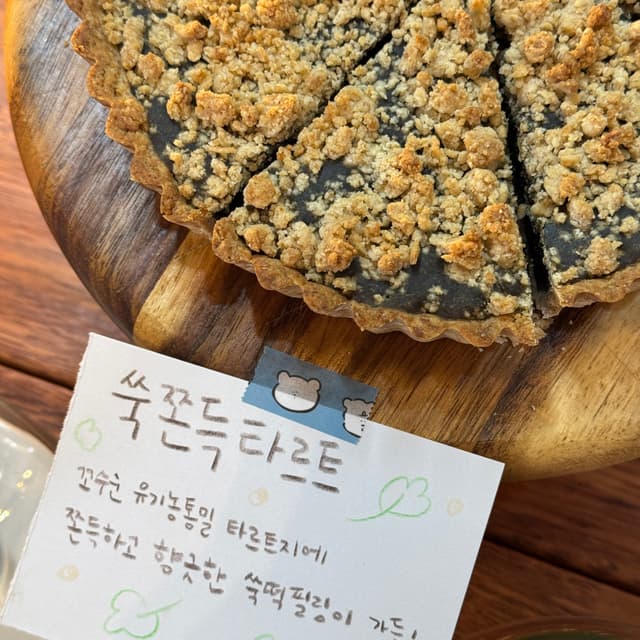 쑥쫀득타르트
꼬수운 유기농통밀 타르트지에
쫀득하고 향긋한 쑥떡필링이 가득!